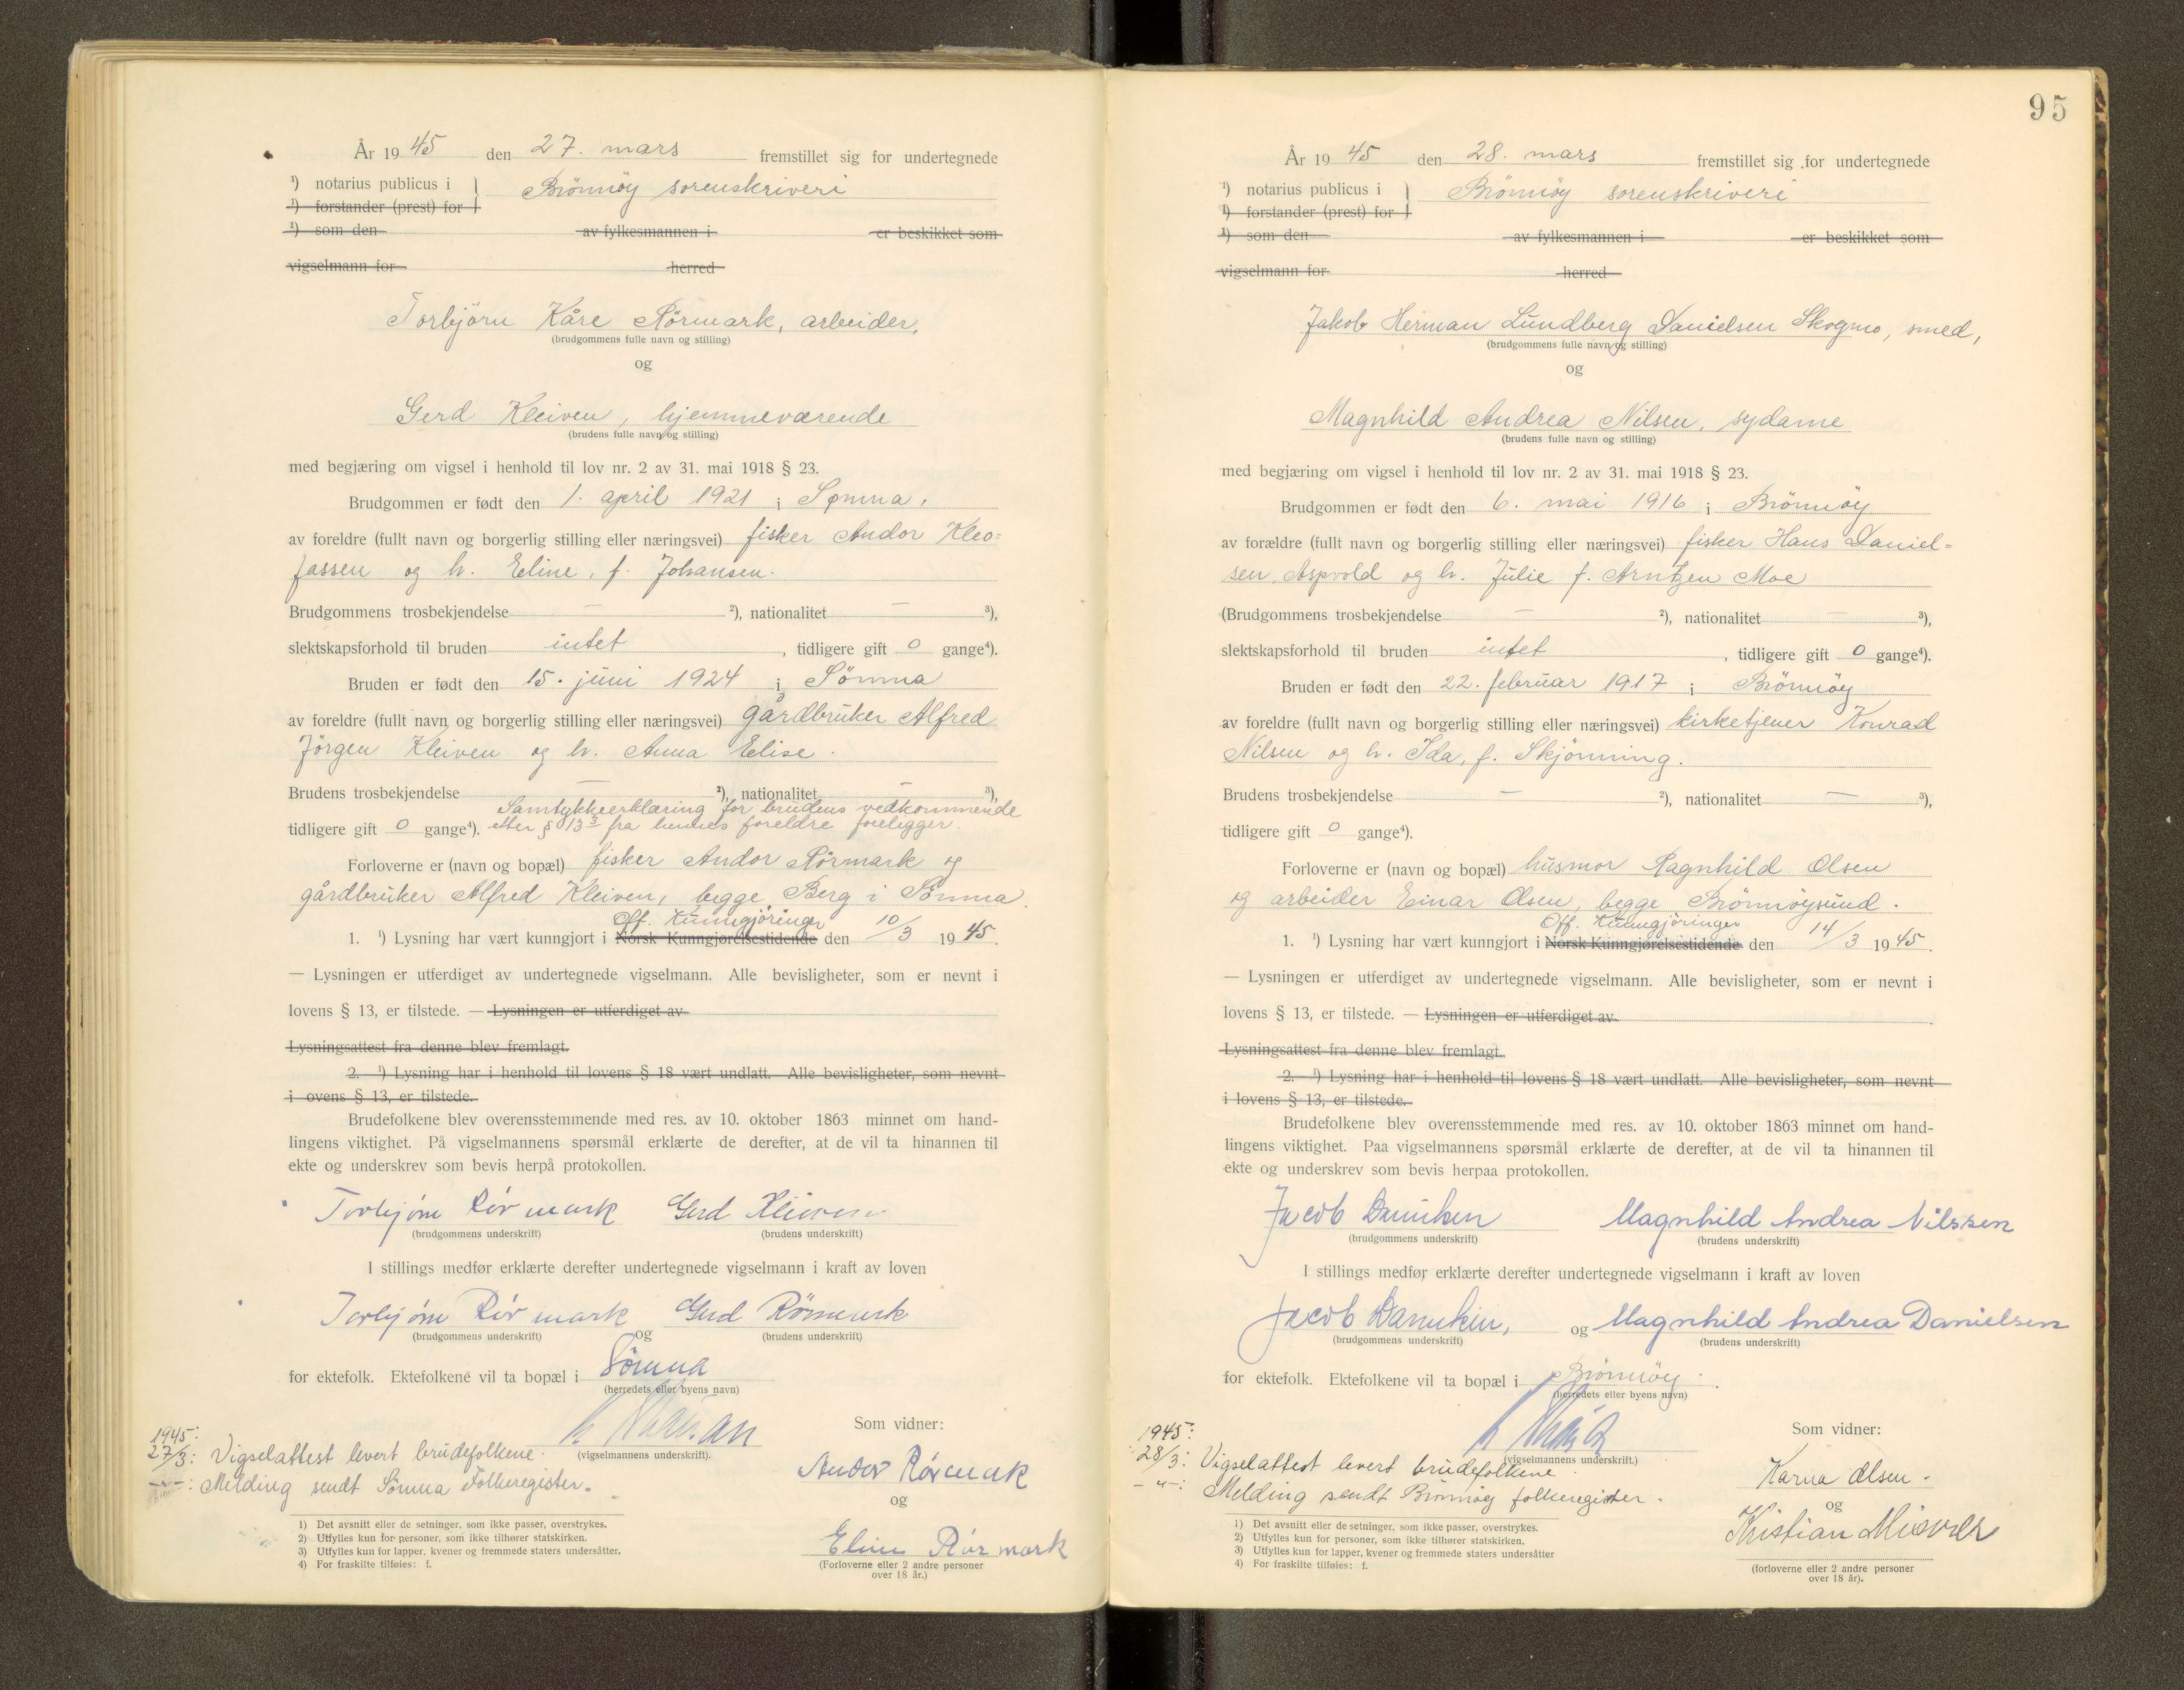 År 1945 den 27. mars fremstillet sig for undertegnede
¹) notarius publicus i } Brönnöy sorenskriveri
¹) forstander (prest) for
¹) som den av fylkesmannen i er beskikket som
vigselmann for herred
Torbjörn Kåre Rörmark, arbeider,
(brudgommens fulle navn og stilling)
og
Gerd Kleiven, hjemmeværende
(brudens fulle navn og stilling)
med begjæring om vigsel i henhold til lov nr. 2 av 31. mai 1918 § 23.
Brudgommen er født den 1. april 1921 i Sømna,
av foreldre (fullt navn og borgerlig stilling eller næringsvei) fisker Andor Kleo-
fassen og h. Eline, f. Johansen.
Brudgommens trosbekjendelse — ²), nationalitet — ³),
slektskapsforhold til bruden intet, tidligere gift 0 gange⁴).
Bruden er født den 15. juni 1924 i Sömna
av foreldre (fullt navn og borgerlig stilling eller næringsvei) gårdbruker Alfred
Jörgen Kleiven og h. Anna Elise.
Brudens trosbekjendelse — ²), nationalitet — ³),
Samtykkeerklæring for brudens vedkommende
tidligere gift 0 gange⁴). etter § 13³ fra hennes foreldre foreligger.
Forloverne er (navn og bopæl) fisker Andor Rörmark og
gårdbruker Alfred Kleiven, begge Berg i Sömna.
Off. Kunngjöringer
1. ¹) Lysning har vært kunngjort i Norsk Kunngjørelsestidende den 10/3 1945.
— Lysningen er utferdiget av undertegnede vigselmann. Alle bevisligheter, som er nevnt i
lovens § 13, er tilstede. — Lysningen er utferdiget av
Lysningsattest fra denne blev fremlagt.
2. ¹) Lysning har i henhold til lovens § 18 vært undlatt. Alle bevisligheter, som nevnt
i ovens § 13, er tilstede.
Brudefolkene blev overensstemmende med res. av 10. oktober 1863 minnet om hand-
lingens viktighet. På vigselmannens spørsmål erklærte de derefter, at de vil ta hinannen til
ekte og underskrev som bevis herpå protokollen.
Torbjörn Rörmark Gerd Kleiven
(brudgommens underskrift) (brudens underskrift)
I stillings medfør erklærte derefter undertegnede vigselmann i kraft av loven
Torbjörn Rörmark og Gerd Rörmark
(brudgommens underskrift) (brudens underskrift)
for ektefolk. Ektefolkene vil ta bopæl i Sömna
(herredets eller byens navn)
Som vidner:
1945:
27/3: Vigselattest levert brudefolkene.
(vigselmannens underskrift).
Andor Rörmark
—"—: Melding sendt Sömna Folkeregister.
og
Eline Rörmark
(Forloverne eller 2 andre personer
over 18 år.)
1) Det avsnitt eller de setninger, som ikke passer, overstrykes.
2) Utfylles kun for personer, som ikke tilhører statskirken.
3) Utfylles kun for lapper, kvener og fremmede staters undersåtter.
4) For fraskilte tilføies: f.
95
År 1945 den 28. mars fremstillet sig for undertegnede
¹) notarius publicus i } Brönnöy sorenskriveri
¹) forstander (prest) for
¹) som den av fylkesmannen i er beskikket som
vigselmann for herred
Jakob Herman Lundberg Danielsen Skogmo, smed,
(brudgommens fulle navn og stilling)
og
Magnhild Andrea Nilsen, sydame
(brudens fulle navn og stilling)
med begjæring om vigsel i henhold til lov nr. 2 av 31. mai 1918 § 23.
Brudgommen er født den 6. mai 1916 i Brönnöy
av forældre (fullt navn og borgerlig stilling eller næringsvei) fisker Hans Daniel-
sen, Aspvold og h. Julie f. Arntzen Moe
(Brudgommens trosbekjendelse — ²), nationalitet — ³),
slektskapsforhold til bruden intet, tidligere gift 0 gange⁴).
Bruden er født den 22. februar 1917 i Brönnöy
av foreldre (fullt navn og borgerlig stilling eller næringsvei) kirketjener Konrad
Nilsen og h. Ida, f. Skjönning.
Brudens trosbekjendelse — ²), nationalitet — ³),
tidligere gift 0 gange⁴).
Forloverne er (navn og bopæl) husmor Ragnhild Olsen
og arbeider Einar Olsen, begge Brönnöysund.
Off. Kunngjöringer
1. ¹) Lysning har vært kunngjort i Norsk Kunngjørelsestidende den 14/3 1945.
— Lysningen er utferdiget av undertegnede vigselmann. Alle bevisligheter, som er nevnt i
lovens § 13, er tilstede. — Lysningen er utferdiget av
Lysningsattest fra denne blev fremlagt.
2. ¹) Lysning har i henhold til lovens § 18 vært undlatt. Alle bevisligheter, som nevnt
i lovens § 13, er tilstede.
Brudefolkene blev overensstemmende med res. av 10. oktober 1863 minnet om hand-
lingens viktighet. Paa vigselmannens spørsmål erklærte de derefter, at de vil ta hinannen til
ekte og underskrev som bevis herpaa protokollen.
Jacob Danielsen Magnhild Andrea Nilssen
(brudgommens underskrift) (brudens underskrift)
I stillings medfør erklærte derefter undertegnede vigselmann i kraft av loven
Jacob Danielsen, og Magnhild Andrea Danielsen
(brudgommens underskrift) (brudens underskrift)
for ektefolk. Ektefolkene vil ta bopæl i Brönnöy.
(herredets eller byens navn)
Som vidner:
1945:
28/3: Vigselattest levert brudefolkene.
(vigselmannens underskrift.)
Karna Olsen.
—"—: Melding sendt Brönnöy folkeregister.
og
Kristian Misvær
(forloverne eller 2 andre personer
over 18 år).
1) Det avsnitt eller de setninger, som ikke passer, overstrykes.
2) Utfylles kun for personer, som ikke tilhører statskirken.
3) Utfylles kun for lapper, kvener og fremmede staters undersåtter
4) For fraskilte tilføies: f.